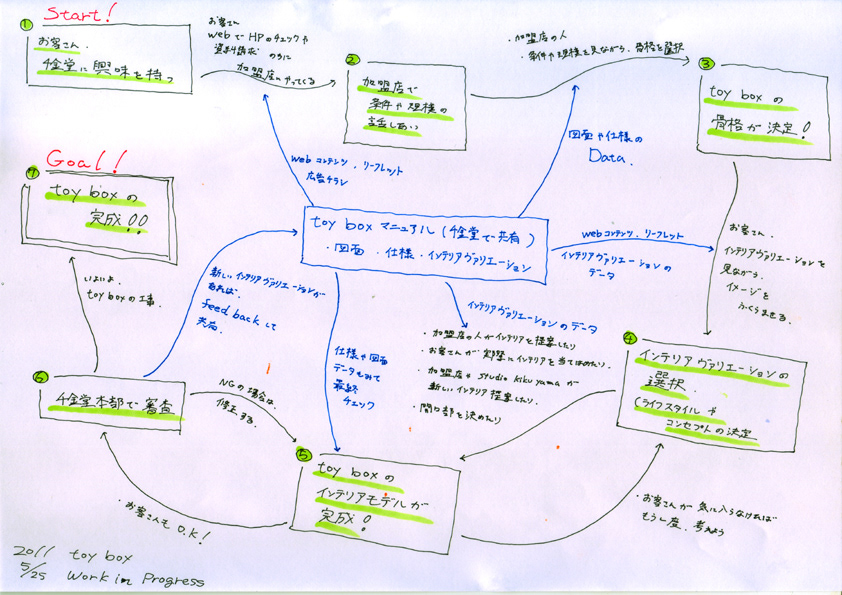 ① Start!
お客さん.
4金堂に興味を持つ
お客さん
webでHPのチェックや
資料請求のちに
加盟店にやってくる
②
加盟店で
条件や規模の
話しあい
・加盟店の人
・条件や規模を見ながら、骨格を選択
③
toy boxの
骨格が決定!
Goal!
⑦
toy boxの
完成!!
webコンテンツ、リーフレット
広告チラシ
図面や仕様の
Data.
toy boxマニュアル(4金堂で共有)
・図面・仕様・インテリアヴァリエーション
webコンテンツ、リーフレット
インテリアヴァリエーションの
データ
お客さん、
インテリアヴァリエーションを
見ながら、
イメージを
ふくらませる.
いよいよ、
toy boxの工事.
新しいインテリアヴァリエーションが
あれば、
feed backして
共有.
仕様や図面
データもみて
最終
チェック
インテリアヴァリエーションのデータ
・加盟店の人がインテリアを提案したり
・お客さんが実際にインテリアを当てはめたり.
・加盟店やstudio kikuyamaが
新しいインテリア提案したり.
・開口部を決めたり
④
インテリアヴァリエーションの
選択.
(ライフスタイルや
コンセプトの決定
⑥
4金堂本部で審査
NGの場合は、
修正する.
⑤
toy boxの
インテリアモデルが
完成!
・お客さんもO.K!
・お客さんが気に入らなければ
もう一度、考えよう
2011 toy box
5/25 Work in Progress